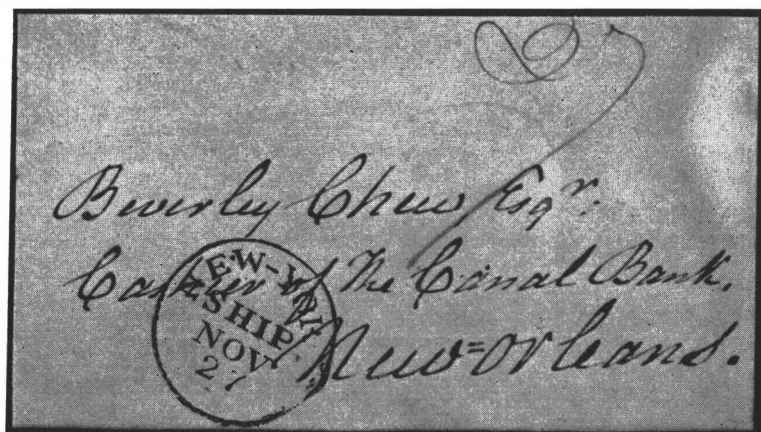 Beverley Chew Esqr.
Cashier of The Canal Bank.
New=Orleans.
NEW-YORK
SHIP
NOV
27